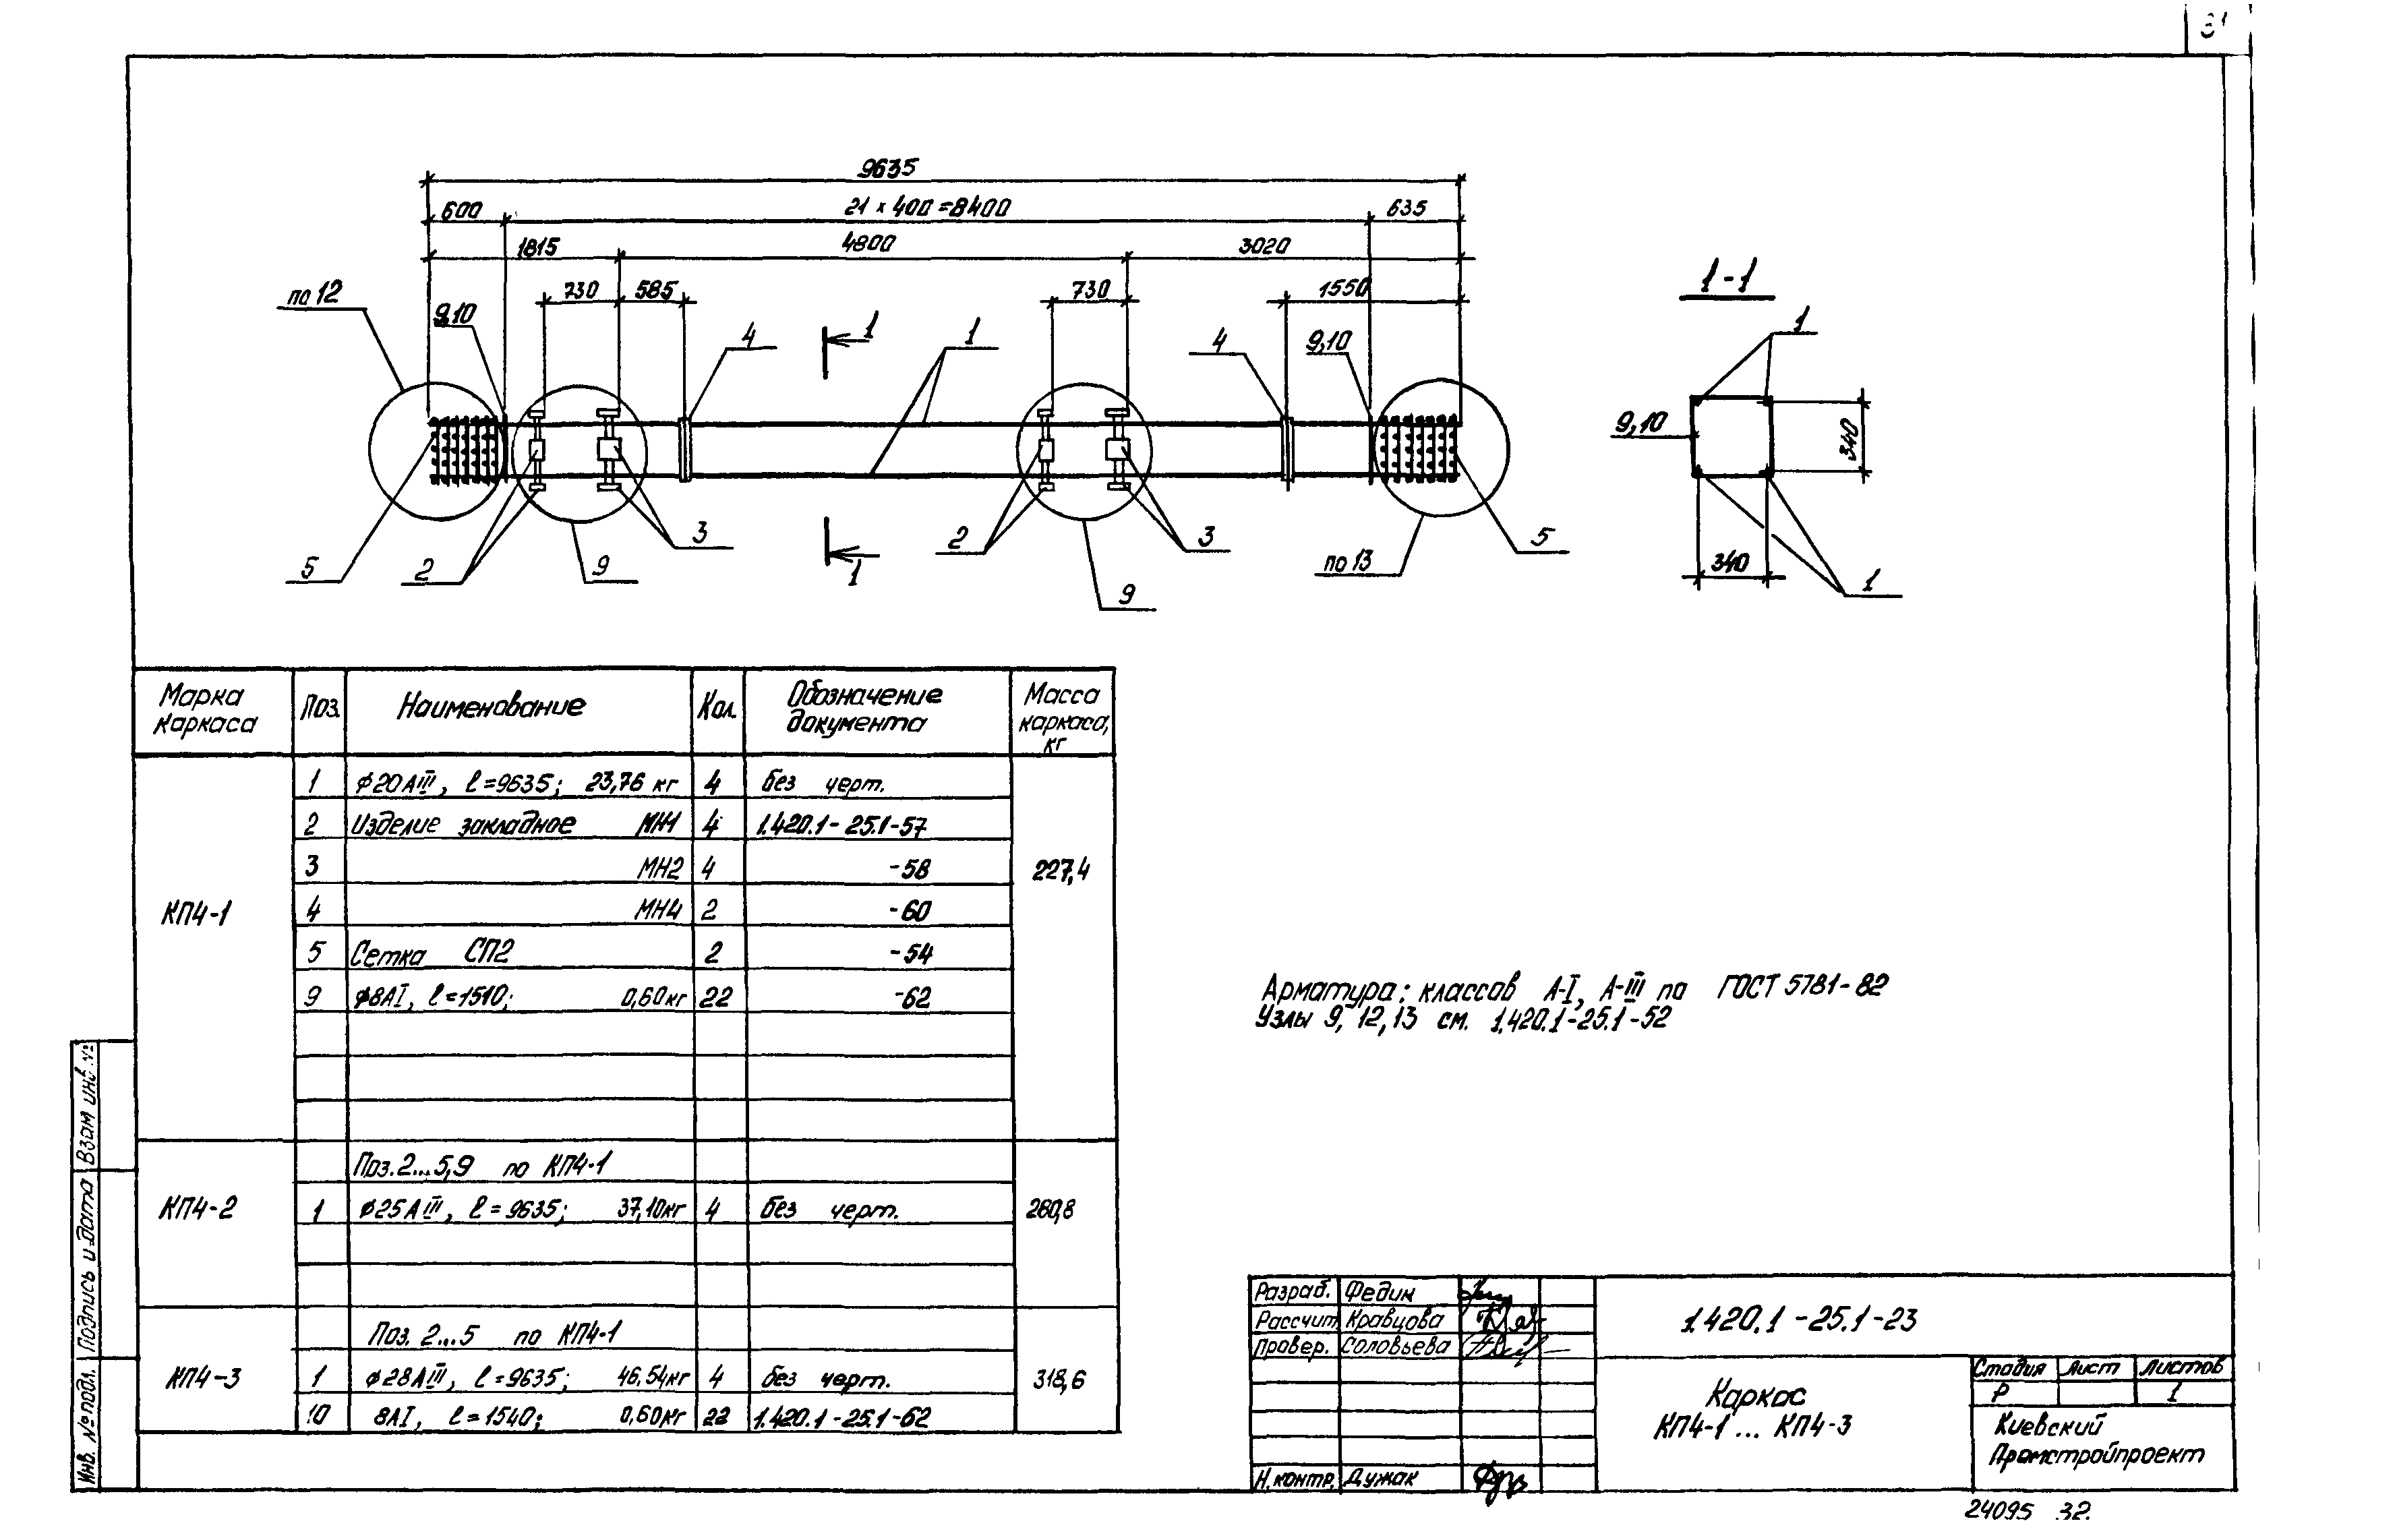 9635
600 21 × 400 = 8400 635
1815 4800 3020
730 585 730 1550
по 12
9,10
4
1
1
4
9,10
5
2
9
3
1
2
9
3
по 13
5
1-1
1
9,10
340
340
1
Марка каркаса Поз. Наименование Кол. Обозначение документа Масса каркаса, кг
КП4-1 227,4
1 ⌀20АIII, ℓ=9635; 23,76 кг 4 без черт.
2 Изделие закладное МН1 4 1.420.1-25.1-57
3 МН2 4 -58
4 МН4 2 -60
5 Сетка СП2 2 -54
9 ⌀8АI, ℓ=1510; 0,60кг 22 -62
КП4-2 260,8
Поз. 2...5,9 по КП4-1
1 ⌀25АIII, ℓ=9635; 37,10кг 4 без черт.
КП4-3 318,6
Поз. 2...5 по КП4-1
1 ⌀28АIII, ℓ=9635; 46,54кг 4 без черт.
10 8АI, ℓ=1540; 0,60кг 22 1.420.1-25.1-62
Арматура: классов А-I, А-III по ГОСТ 5781-82
Узлы 9, 12, 13 см. 1.420.1-25.1-52
Разраб. Федин
Рассчит. Кравцова
Провер. Соловьева
Н.контр. Дужак
1.420.1-25.1-23
Каркас
КП4-1 ... КП4-3
Стадия Лист Листов
Р 1
Киевский
Промстройпроект
Инв. № подл. Подпись и дата Взам инв.№
24095 32.